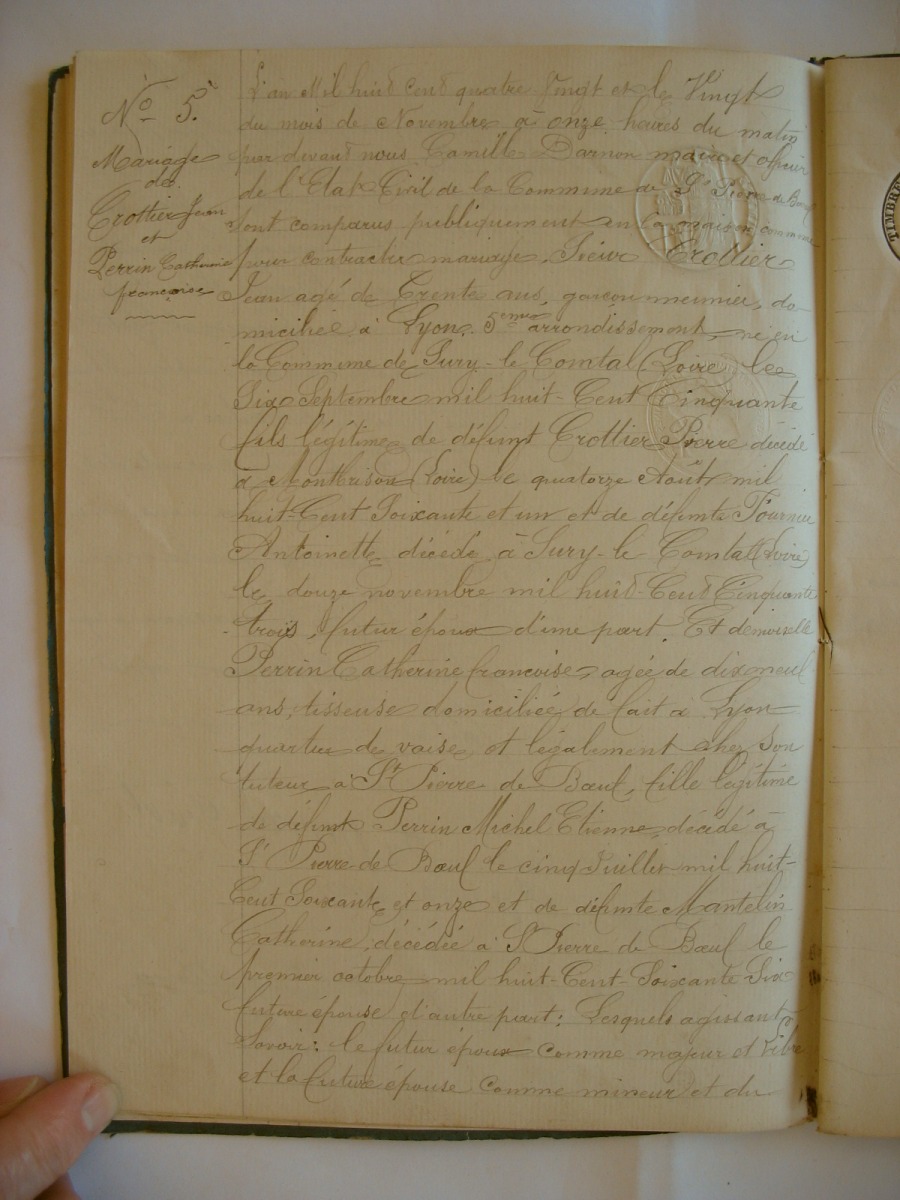 No 5.
Mariage
de
Crottier Jean
et
Perrin Catherine
françoise
L'an Mil huit cent quatre Vingt et le Vingt
du mois de Novembre à onze heures du matin
par devant nous Camille Darnon maire et officier
de l'Etat Civil de la Commune de St Pierre de Boeuf
sont comparus publiquement en la maison commune
pour contracter mariage, Sieur Crottier
Jean agé de Trente ans, garçon meunier, do
miciliée à Lyon 5eme arrondissement, né en
la Commune de Sury-le Comtal (Loire) le
Six Septembre mil huit-Cent Cinquante
fils légitime de défunt Crottier Pierre décédé
à Montbrison (Loire) le quatorze Août mil
huit-Cent Soixante et un et de défunte Fournier
Antoinette décédé à Sury-le Comtal (Loire)
le douze novembre mil huit-Cent Cinquante
trois, futur époux d'une part. Et demoiselle
Perrin Catherine françoise, agée de dix neuf
ans, tisseuse domiciliée de fait à Lyon
quartier de vaise et légalement chez son
tuteur à St Pierre de Bœuf, fille légitime
de défunt Perrin Michel Etienne, décédé à
St Pierre de Bœuf le cinq Juillet mil huit-
Cent Soixante et onze et de défunte Mantelin
Catherine, décédée à St Pierre de Bœuf le
premier octobre mil huit-Cent-Soixante Six
future épouse d'autre part: Lesquels agissant
Savoir: le futur époux comme majeur et libre
et la future épouse comme mineur et du
TIMBRE